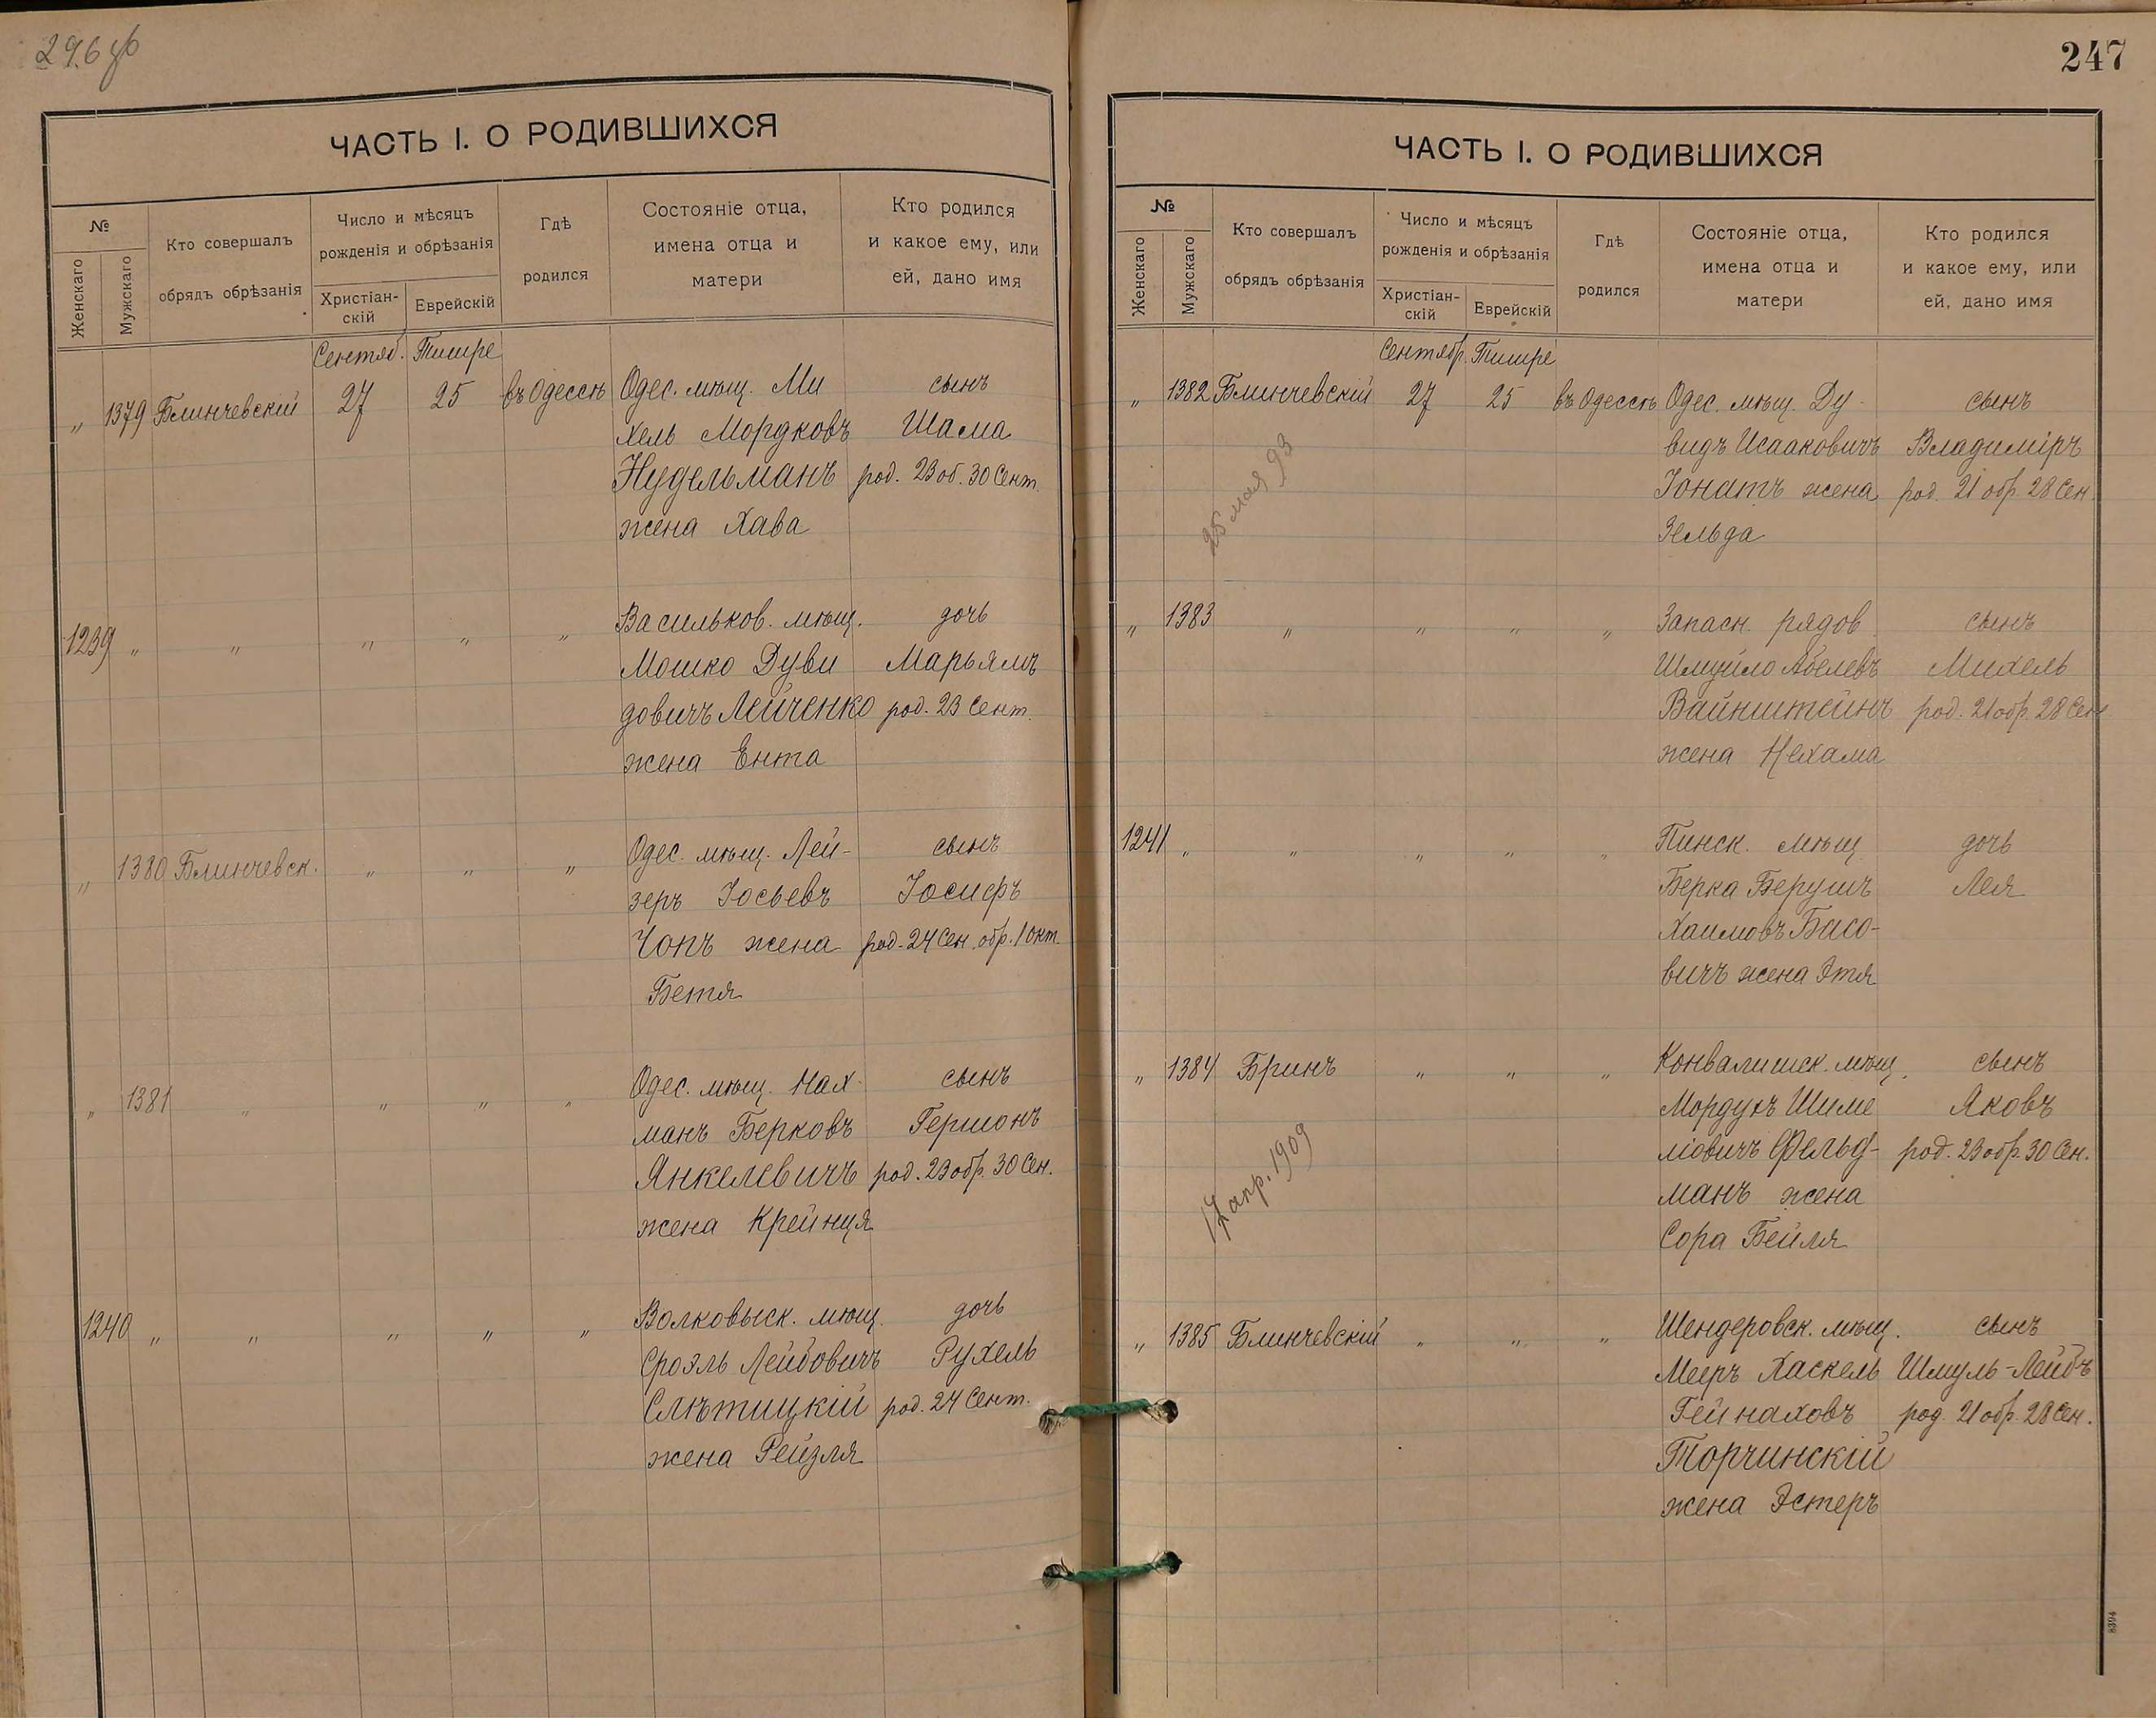 ЧАСТЬ I. О РОДИВШИХСЯ
№
Женскаго
Мужскаго
Кто совершалъ
обрядъ обрѣзанія
Число и мѣсяцъ
рожденія и обрѣзанія
Христіан-
скій
Еврейскій
Гдѣ
родился
Состояніе отца,
имена отца и
матери
Кто родился
и какое ему, или
ей, дано имя
Сентяб. Тишре
„ 1379 Блинчевскій 27 25 въ Одессѣ Одес. мѣщ. Ми сынъ
хель Мордковъ Шама
Нудельманъ род. 23 об. 30 Сент.
жена Хава
1239 „ „ „ „ „ Васильков. мѣщ. дочь
Мошко Дуви Марьямъ
довичъ Лейченко род. 23 Сент.
жена Ента
„ 1380 Блинчевск. „ „ „ Одес. мѣщ. Лей- сынъ
зеръ Іосьевъ Іосифъ
Чопъ жена род. 24 Сен. обр. 1 Окт.
Бетя
„ 1381 „ „ „ „ Одес. мѣщ. Нах- сынъ
манъ Берковъ Гершонъ
Янкелевичъ род. 23 обр. 30 Сен.
жена Крейнця
1240 „ „ „ „ „ Волковыск. мѣщ. дочь
Сроэль Лейбовичъ Рухель
Слѣтицкій род. 24 Сент.
жена Рейзля
247
ЧАСТЬ I. О РОДИВШИХСЯ
№
Женскаго
Мужскаго
Кто совершалъ
обрядъ обрѣзанія
Число и мѣсяцъ
рожденія и обрѣзанія
Христіан-
скій
Еврейскій
Гдѣ
родился
Состояніе отца,
имена отца и
матери
Кто родился
и какое ему, или
ей, дано имя
Сентябр. Тишре
„ 1382 Блинчевскій 27 25 въ Одессѣ Одес. мѣщ. Ду- сынъ
видъ Исааковичъ Владиміръ
Іонатъ жена род. 21 обр. 28 Сен.
Зельда
25 мая 93
„ 1383 „ „ „ „ Запасн. рядов. сынъ
Шмуйло Абелевъ Михель
Вайнштейнъ род. 21 обр. 28 Сен
жена Нехама
1241 „ „ „ „ „ Пинск. мѣщ дочь
Берка Берушъ Лея
Хаимовъ Басо-
вичъ жена Этя
„ 1384 Бринъ „ „ „ Конвалишск. мѣщ. сынъ
Мордухъ Шиме Яковъ
ліовичъ Фельд- род. 23 обр. 30 Сен.
манъ жена
Сора Бейля
17 апр. 1909
„ 1385 Блинчевскій „ „ „ Шендеровск. мѣщ. сынъ
Мееръ Хаскель Шмуль-Лейбъ
Гейнаховъ род. 21 обр. 28 Сен.
Торчинскій
жена Эстеръ
8394